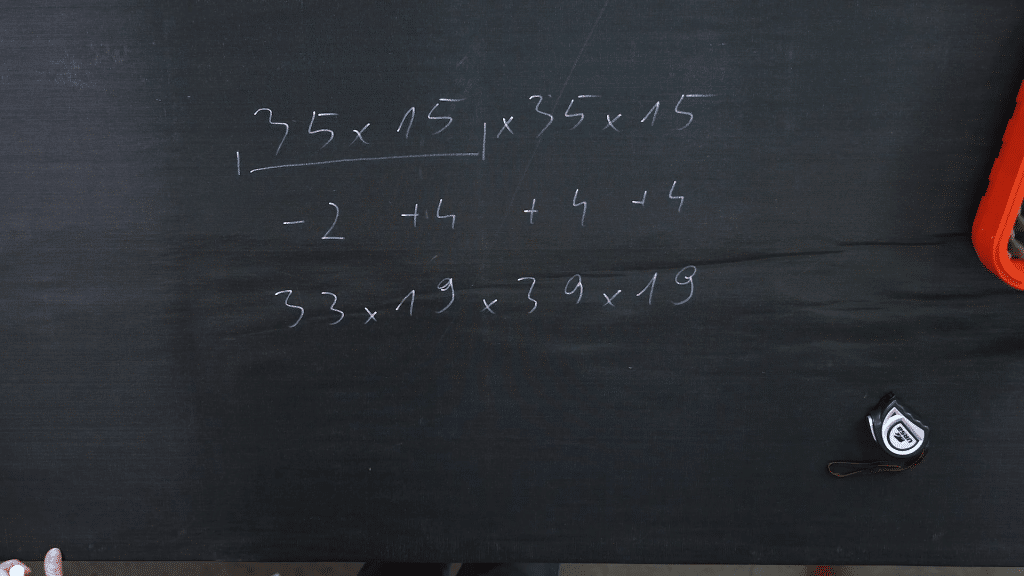 35 x 15 x 35 x 15
-2 +4 +4 +4
33 x 19 x 39 x 19